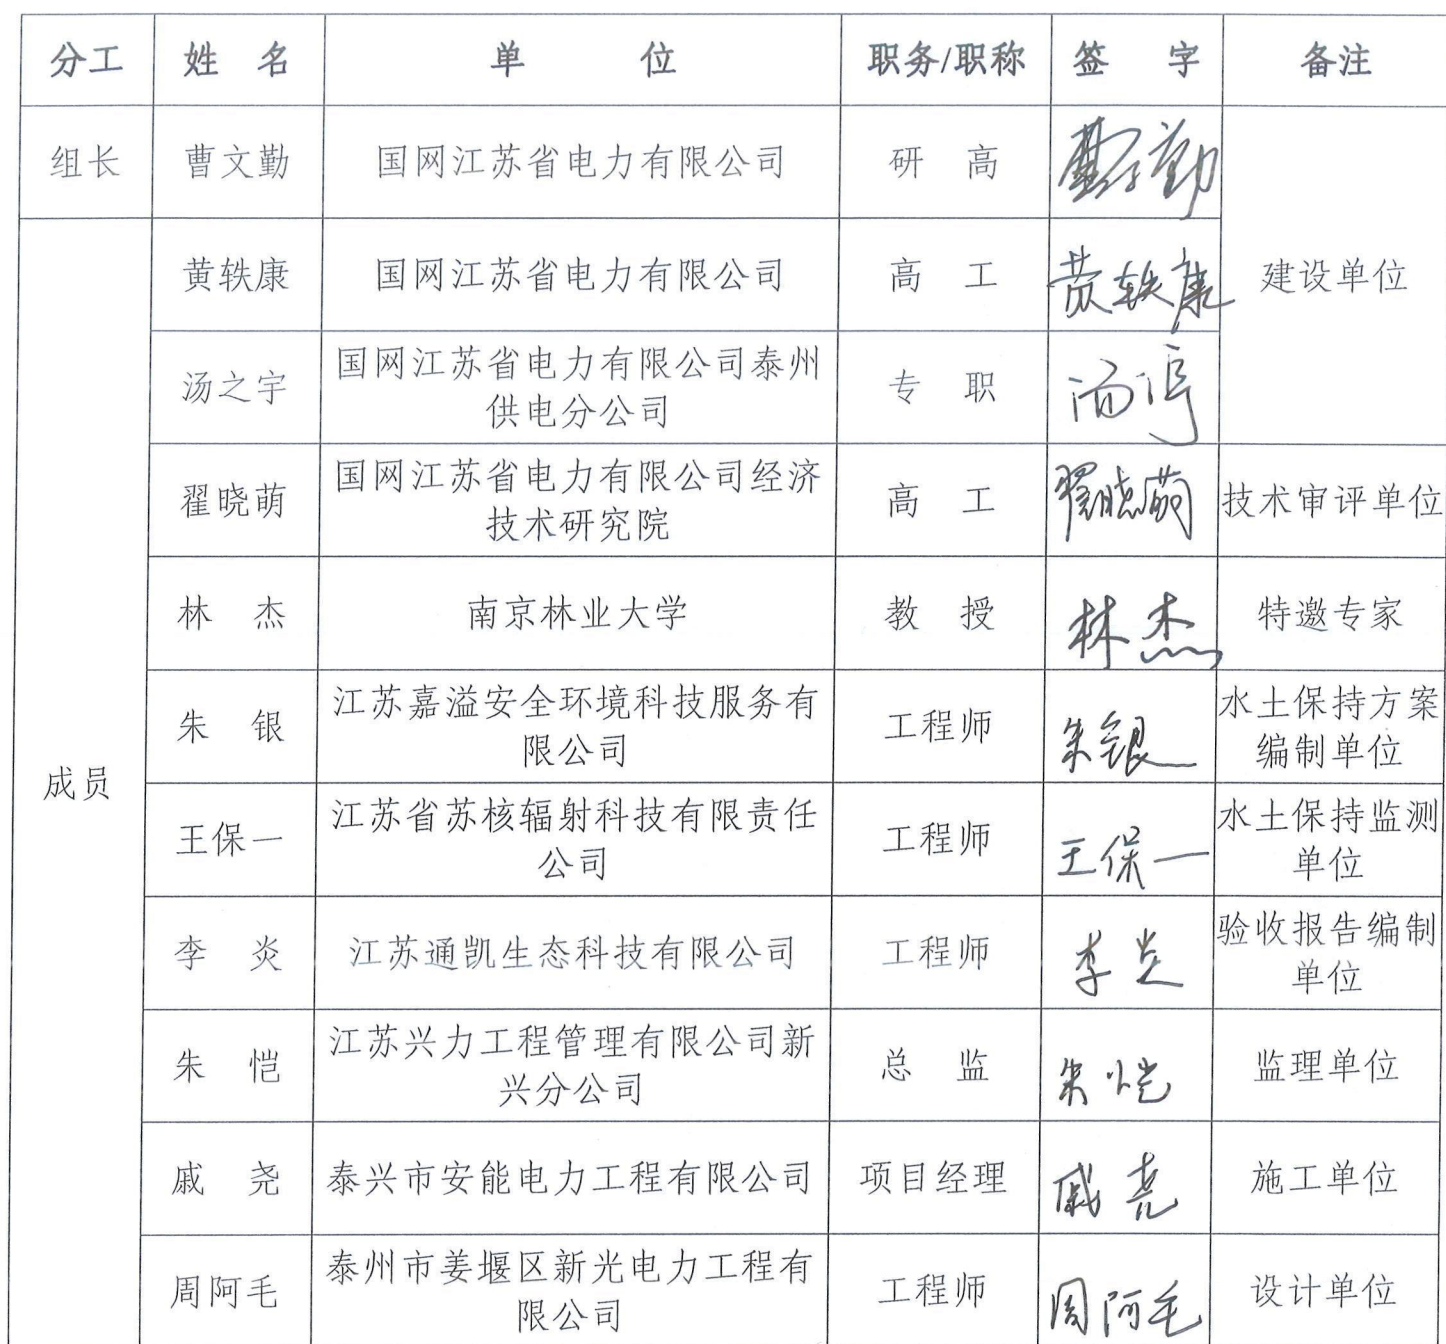 分工 姓 名 单 位 职务/职称 签 字 备注
组长 曹文勤 国网江苏省电力有限公司 研 高 曹文勤
黄轶康 国网江苏省电力有限公司 高 工 黄轶康 建设单位
汤之宇 国网江苏省电力有限公司泰州
供电分公司 专 职 汤之宇
翟晓萌 国网江苏省电力有限公司经济
技术研究院 高 工 翟晓萌 技术审评单位
林 杰 南京林业大学 教 授 林杰 特邀专家
成员
朱 银 江苏嘉溢安全环境科技服务有
限公司 工程师 朱银 水土保持方案
编制单位
王保一 江苏省苏核辐射科技有限责任
公司 工程师 王保一 水土保持监测
单位
李 炎 江苏通凯生态科技有限公司 工程师 李炎 验收报告编制
单位
朱 恺 江苏兴力工程管理有限公司新
兴分公司 总 监 朱恺 监理单位
戚 尧 泰兴市安能电力工程有限公司 项目经理 戚尧 施工单位
周阿毛 泰州市姜堰区新光电力工程有
限公司 工程师 周阿毛 设计单位